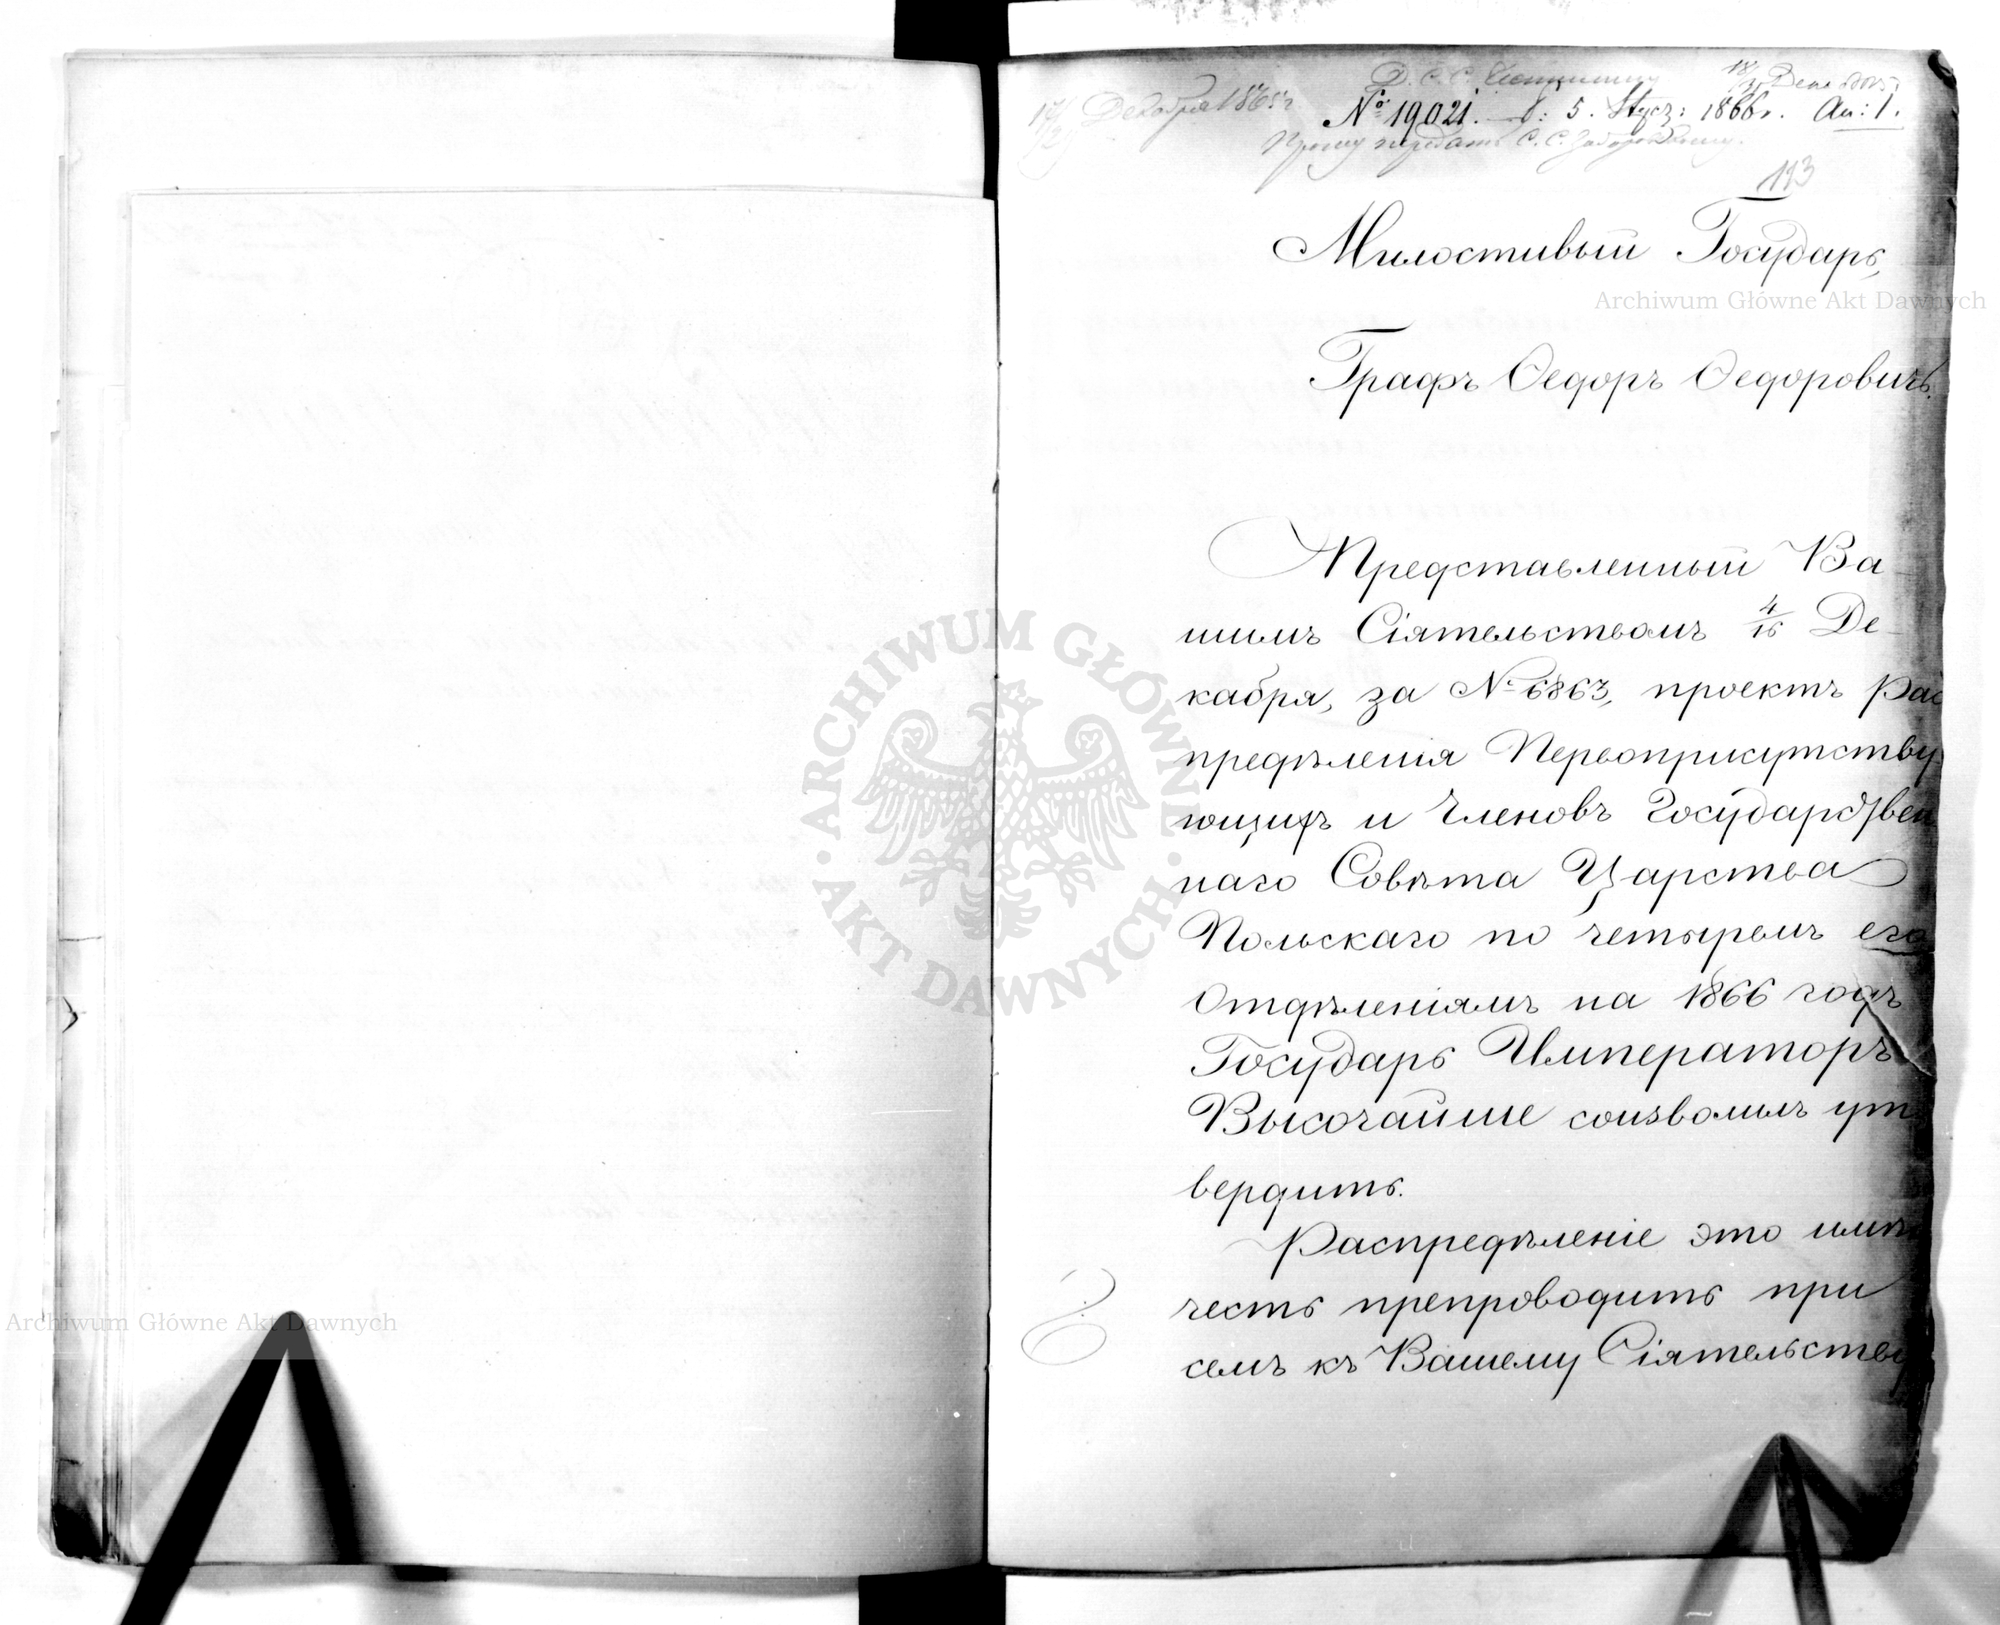 Декабря 1865 г.
Д. С. С.
№ 19021. d: 5. Stycz: 1866 r. An: 1.
Прошу передать С. С.
113
Милостивый Государь,
Archiwum Główne Akt Dawnych
Графъ Ѳедоръ Ѳедоровичъ.
Представленный Ва-
шимъ Сіятельствомъ 4/16 Де-
кабря, за № 6863, проектъ рас
предѣленія Первоприсутству
ющихъ и Членовъ Государствен
наго Совѣта Царства
Польскаго по четыремъ его
Отдѣленіямъ на 1866 годъ
Государь Императоръ
Высочайше соизволилъ ут
вердить.
Распредѣленіе это имѣю
честь препроводить при
семъ къ Вашему Сіятельству
ARCHIWUM GŁÓWNE
· AKT DAWNYCH ·
Archiwum Główne Akt Dawnych